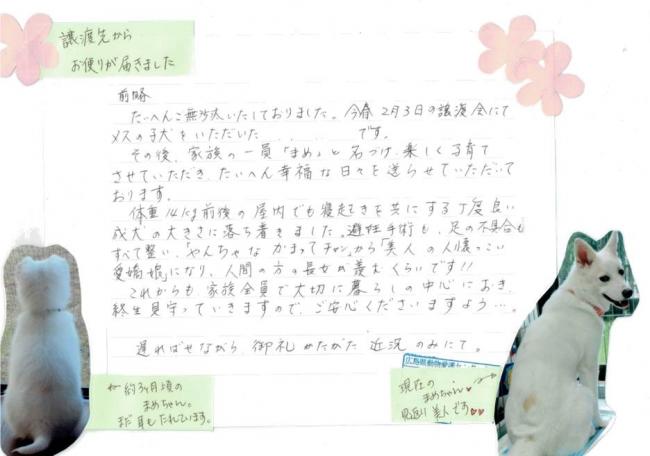 譲渡先から
お便りが届きました
前略
たいへんご無沙汰いたしておりました。今春2月3日の譲渡会にて
メスの子犬をいただいた . . . . です。
その後、家族の一員「まめ」と名づけ、楽しく子育て
させていただき、たいへん幸福な日々を送らせていただいて
おります。
体重14kg前後の屋内でも寝起きを共にする丁度良い
成犬の大きさに落ち着きました。避妊手術も、足の不具合も
すべて整い、「やんちゃな かまってチャン」から「美人の人懐っこい
愛嬌娘」になり、人間の方の長女が羨むくらいです!!
これからも、家族全員で大切に暮らしの中心におき、
終生見守っていきますので、ご安心くださいますよう…。
遅ればせながら、御礼かたがた 近況のみにて。
広島県動物愛護センター
← 約3ヶ月頃の
まめちゃん。
まだ耳もたれています。
現在の
まめちゃん →
見返り美人です♥♥